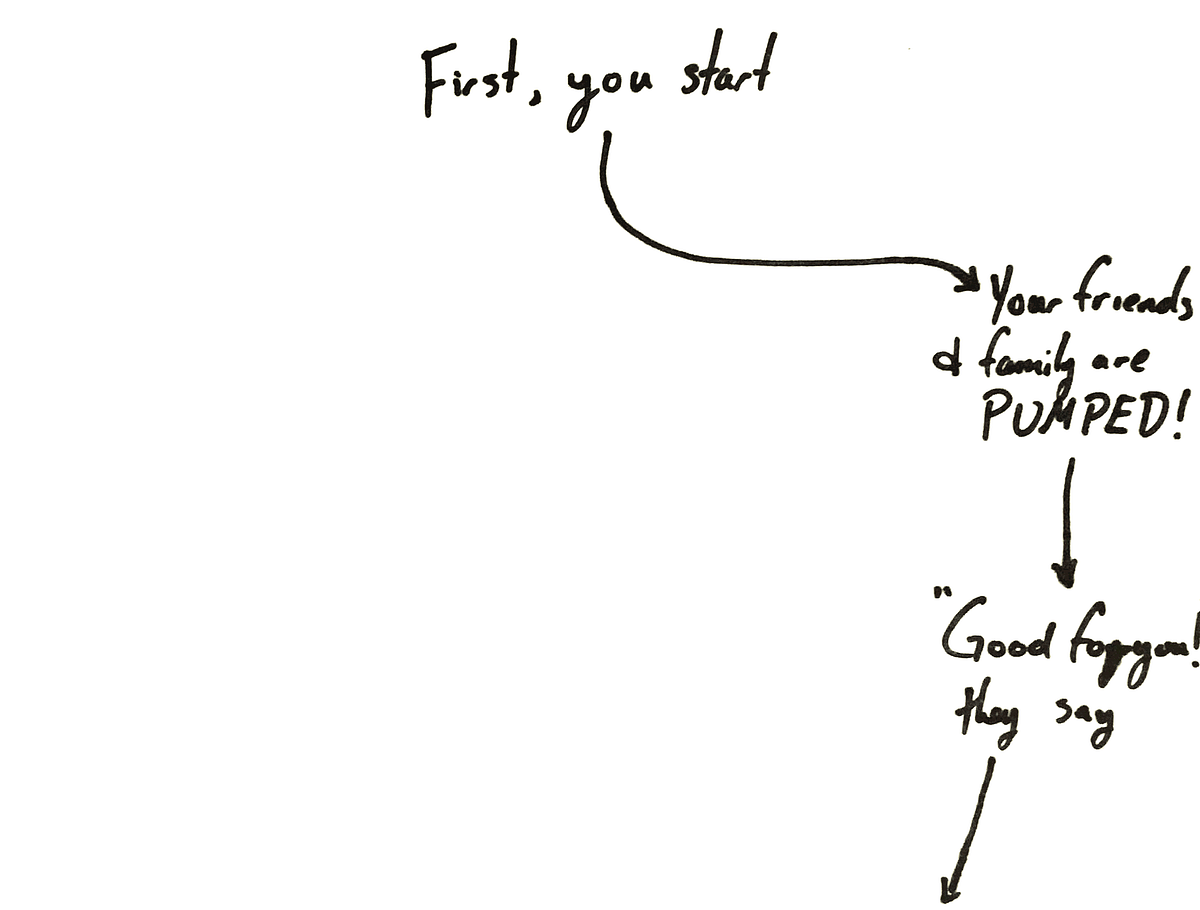 First, you start
Your friends
& family are
PUMPED!
"Good for you!
they say